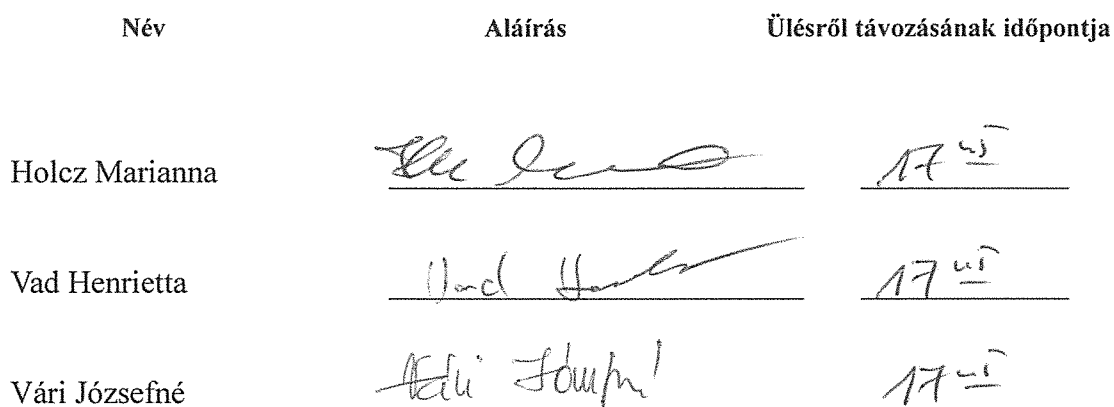 Név Aláírás Ülésről távozásának időpontja
Holcz Marianna 17
Vad Henrietta Vad 17
Vári Józsefné Vári Józsefné 17